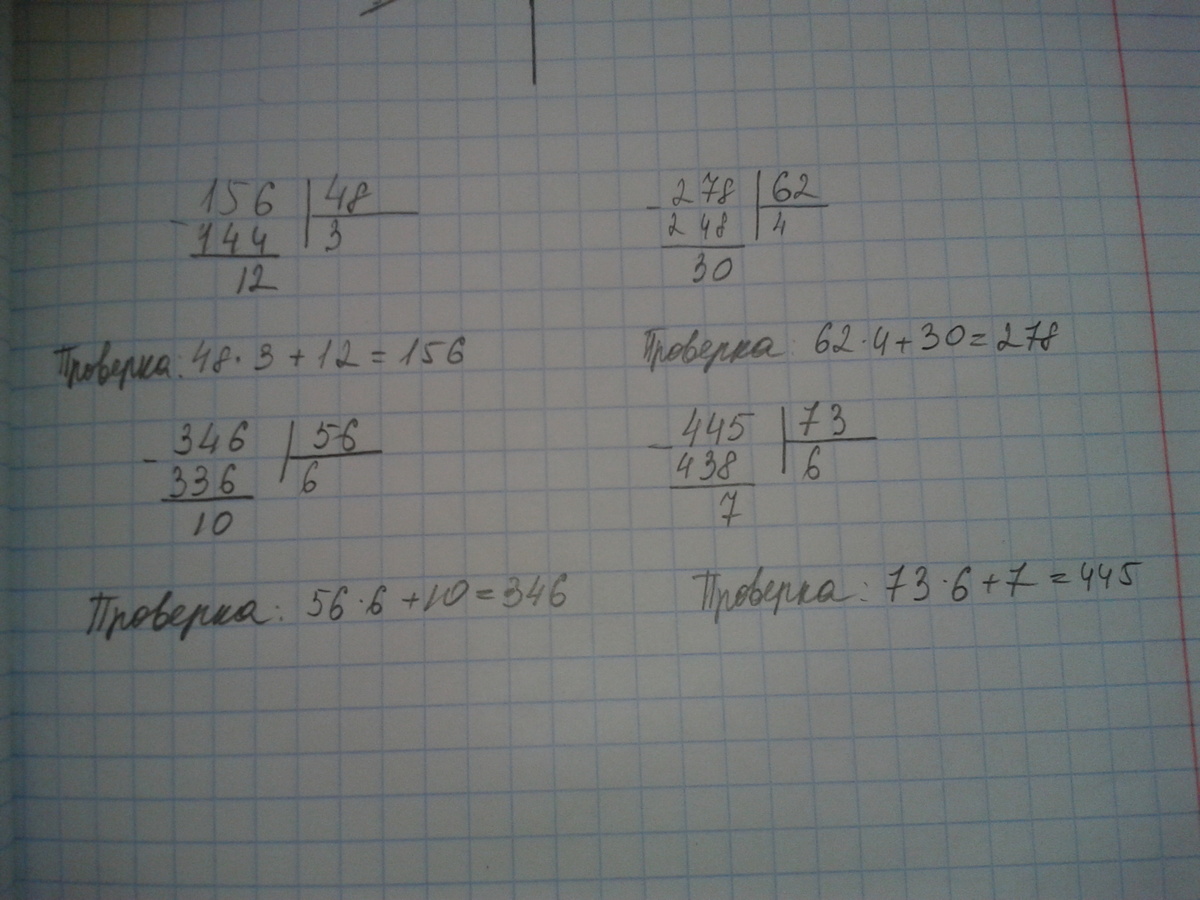 156 48
- 144 3
12
278 62
- 248 4
30
Проверка: 48·3+12=156
Проверка: 62·4+30=278
346 56
- 336 6
10
445 73
- 438 6
7
Проверка: 56·6+10=346
Проверка: 73·6+7=445